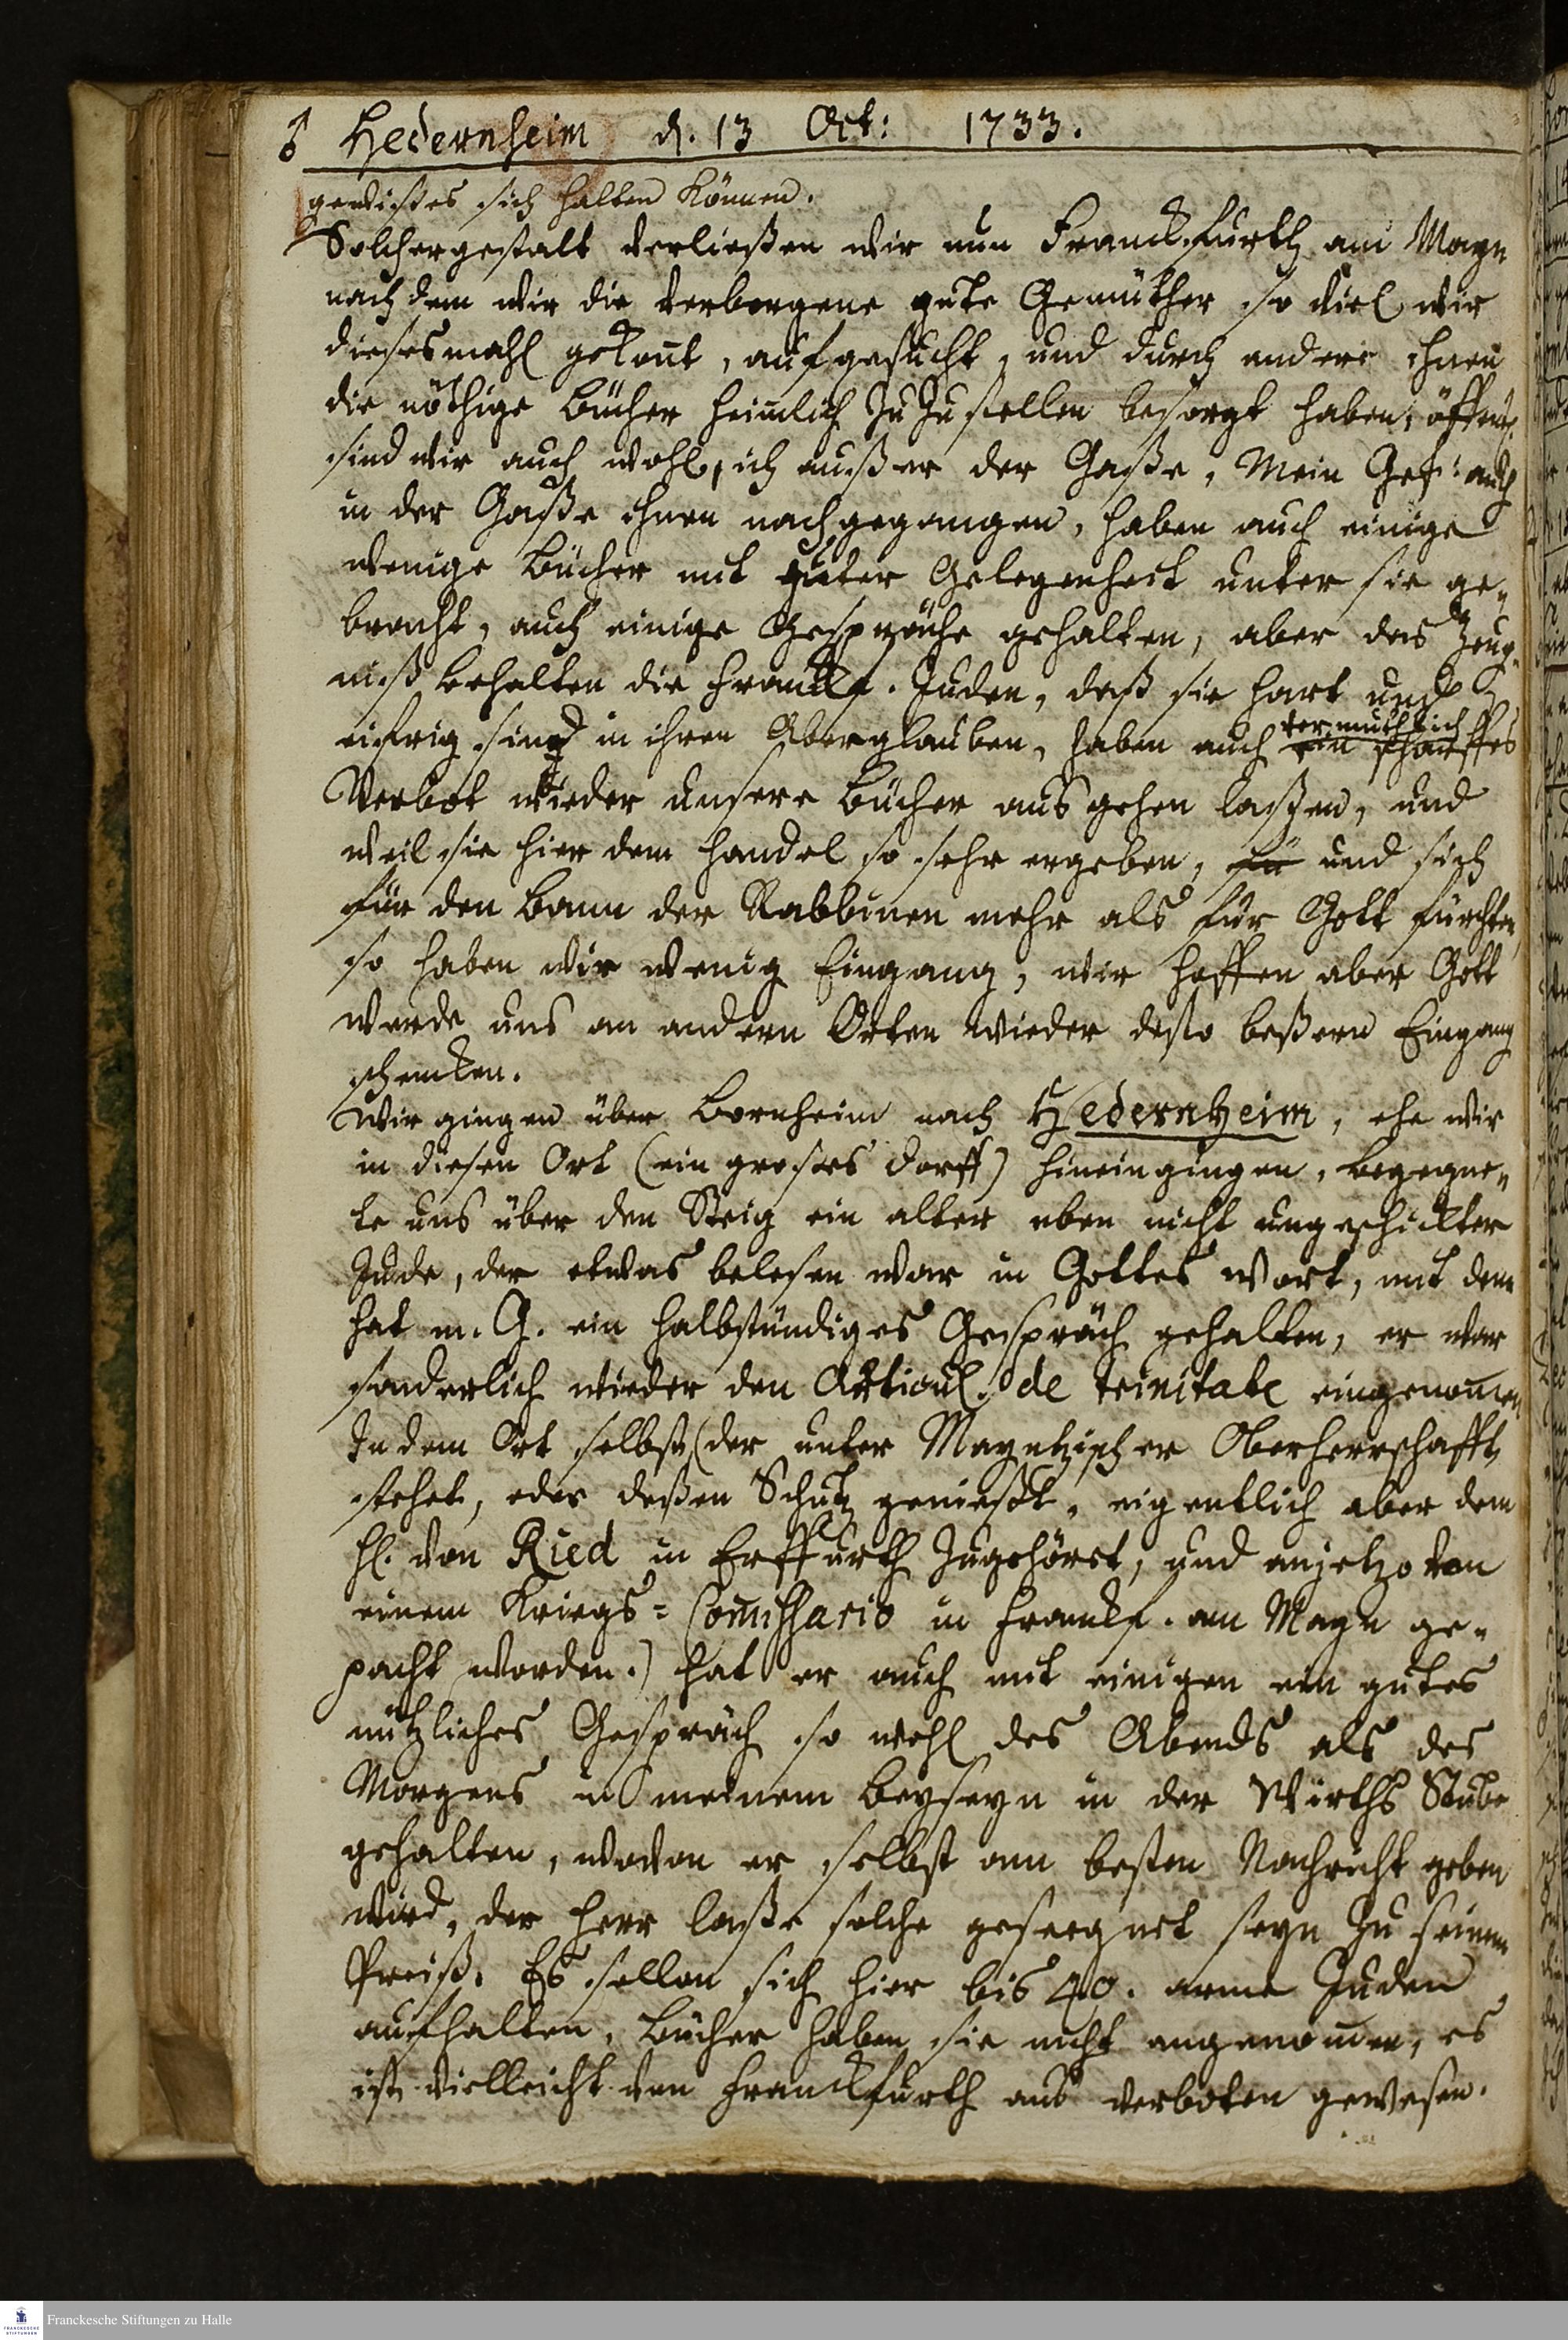 ♂ Hedernheim d. 13 Oct: 1733.
gewißes sich halten können.
Solchergestalt verließen wir nun Franckfurth am Mayn
nach dem wir die verborgene gute Gemüther so viel wir
diesesmahl gekont, aufgesucht, und durch andere ihnen
die nöthige Bücher heimlich zu zustellen besorgt haben, öffentl.
sind wir auch wohl, ich außer der Gaße, Mein Gef: auch
in der Gaße ihnen nachgegangen, haben auch einige
wenige Bücher mit guter Gelegenheit unter sie ge-
bracht, auch einige Gespräche gehalten, aber das Zeug-
niß behalten die Franckf. Juden, daß sie hart und
eifrig sind in ihren Aberglauben, haben auch vermuthlich
ein scharffes
Verbot wieder unsere Bücher ausgehen laßen, und
weil sie hier dem Handel so sehr ergeben, und sich
für den Bann der Rabbinen mehr als für Gott fürchten,
so haben wir wenig Eingang, wir hoffen aber Gott
werde uns an andern Orten wieder desto beßern Eingang
schencken.
Wir gingen über Bornheim nach Hedernheim, ehe wir
in diesen Ort (ein großes Dorff) hineingingen, begegne-
te uns über den Steig ein alter eben nicht ungeschickter
Jude, der etwas belesen war in Gottes Wort, mit dem
hat m. G. ein halbstündiges Gespräch gehalten, er war
sonderlich wieder den Articul de trinitate eingenomen
In dem Ort selbst (der unter Mayntzischer Oberherrschafft
stehet, oder deßen Schutz genießt, eigentlich aber dem
H. von Ried in Erffurth zugehöret, und anjetzo von
einem Kriegs-Comissario in Franckf. am Mayn ge-
pacht worden.) hat er auch mit einigen ein gutes
nützliches Gespräch so wohl des Abends als des
Morgens in meinem Beyseyn in der Wirths Stube
gehalten, wovon er selbst am besten Nachricht geben
wird, der Herr laße solche geseegnet seyn zu seinem
Preiß. Es sollen sich hier bis 40. arme Juden
aufhalten, Bücher haben sie nicht angenomen, es
ist vielleicht von Franckfurth aus verboten gewesen.
Franckesche Stiftungen zu Halle